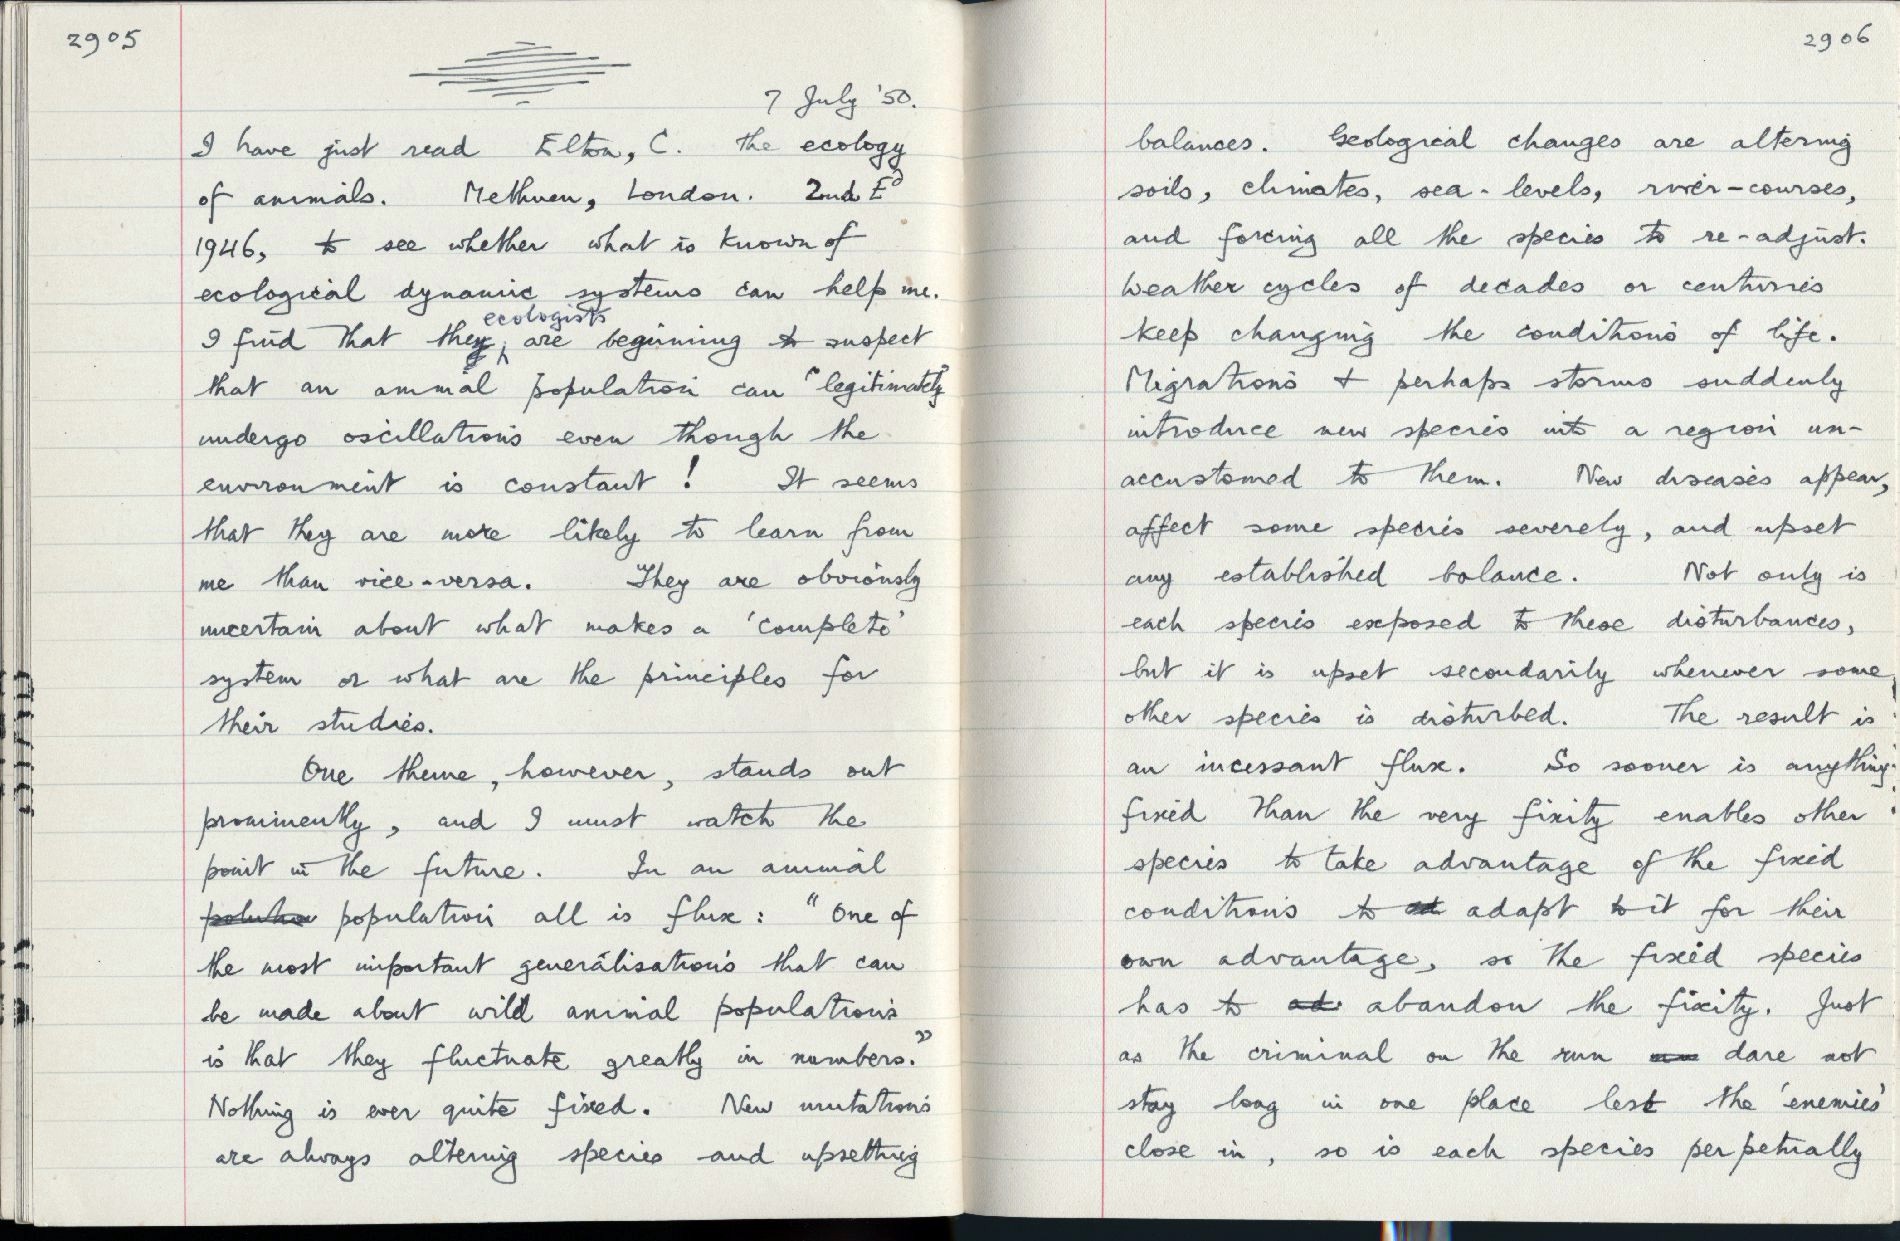 2905
7 July '50.
I have just read Elton, C. The ecology
of animals. Methuen, London. 2nd Ed
1946, to see whether what is known of
ecological dynamic systems can help me.
ecologists
I find that they are beginning to suspect
that an animal population can "legitimately"
undergo oscillations even though the
environment is constant! It seems
that they are more likely to learn from
me than vice-versa. They are obviously
uncertain about what makes a 'complete'
system or what are the principles for
their studies.
One theme, however, stands out
prominently, and I must watch the
point in the future. In an animal
population all is flux: "One of
the most important generalisations that can
be made about wild animal populations
is that they fluctuate greatly in numbers."
Nothing is ever quite fixed. New mutations
are always altering species and upsetting
2906
balances. Geological changes are altering
soils, climates, sea-levels, river-courses,
and forcing all the species to re-adjust.
Weather cycles of decades or centuries
keep changing the conditions of life.
Migrations & perhaps storms suddenly
introduce new species into a region un-
accustomed to them. New diseases appear,
affect some species severely, and upset
any established balance. Not only is
each species exposed to these disturbances,
but it is upset secondarily whenever some
other species is disturbed. The result is
an incessant flux. So sooner is anything
fixed than the very fixity enables other
species to take advantage of the fixed
conditions to adapt to it for their
own advantage, so the fixed species
has to abandon the fixity. Just
as the criminal on the run dare not
stay long in one place lest the 'enemies'
close in, so is each species perpetually